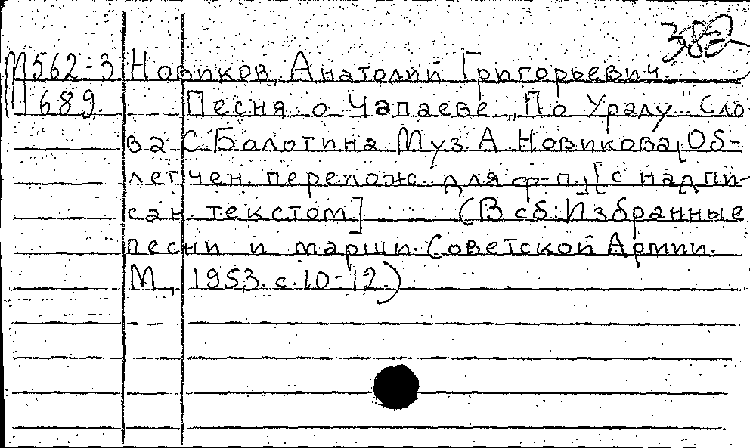 382
М562-3 Новиков, Анатолий Григорьевич.
689. Песня о Чапаеве „По Уралу. Сло
ва С. Болотина Муз. А. Новикова, Об-
легчен. перелож. для ф-п., [с надпи-
сан. текстом] (В сб: Избранные
песни и марши Советской Армии.
М., 1953. с. 10-12.)